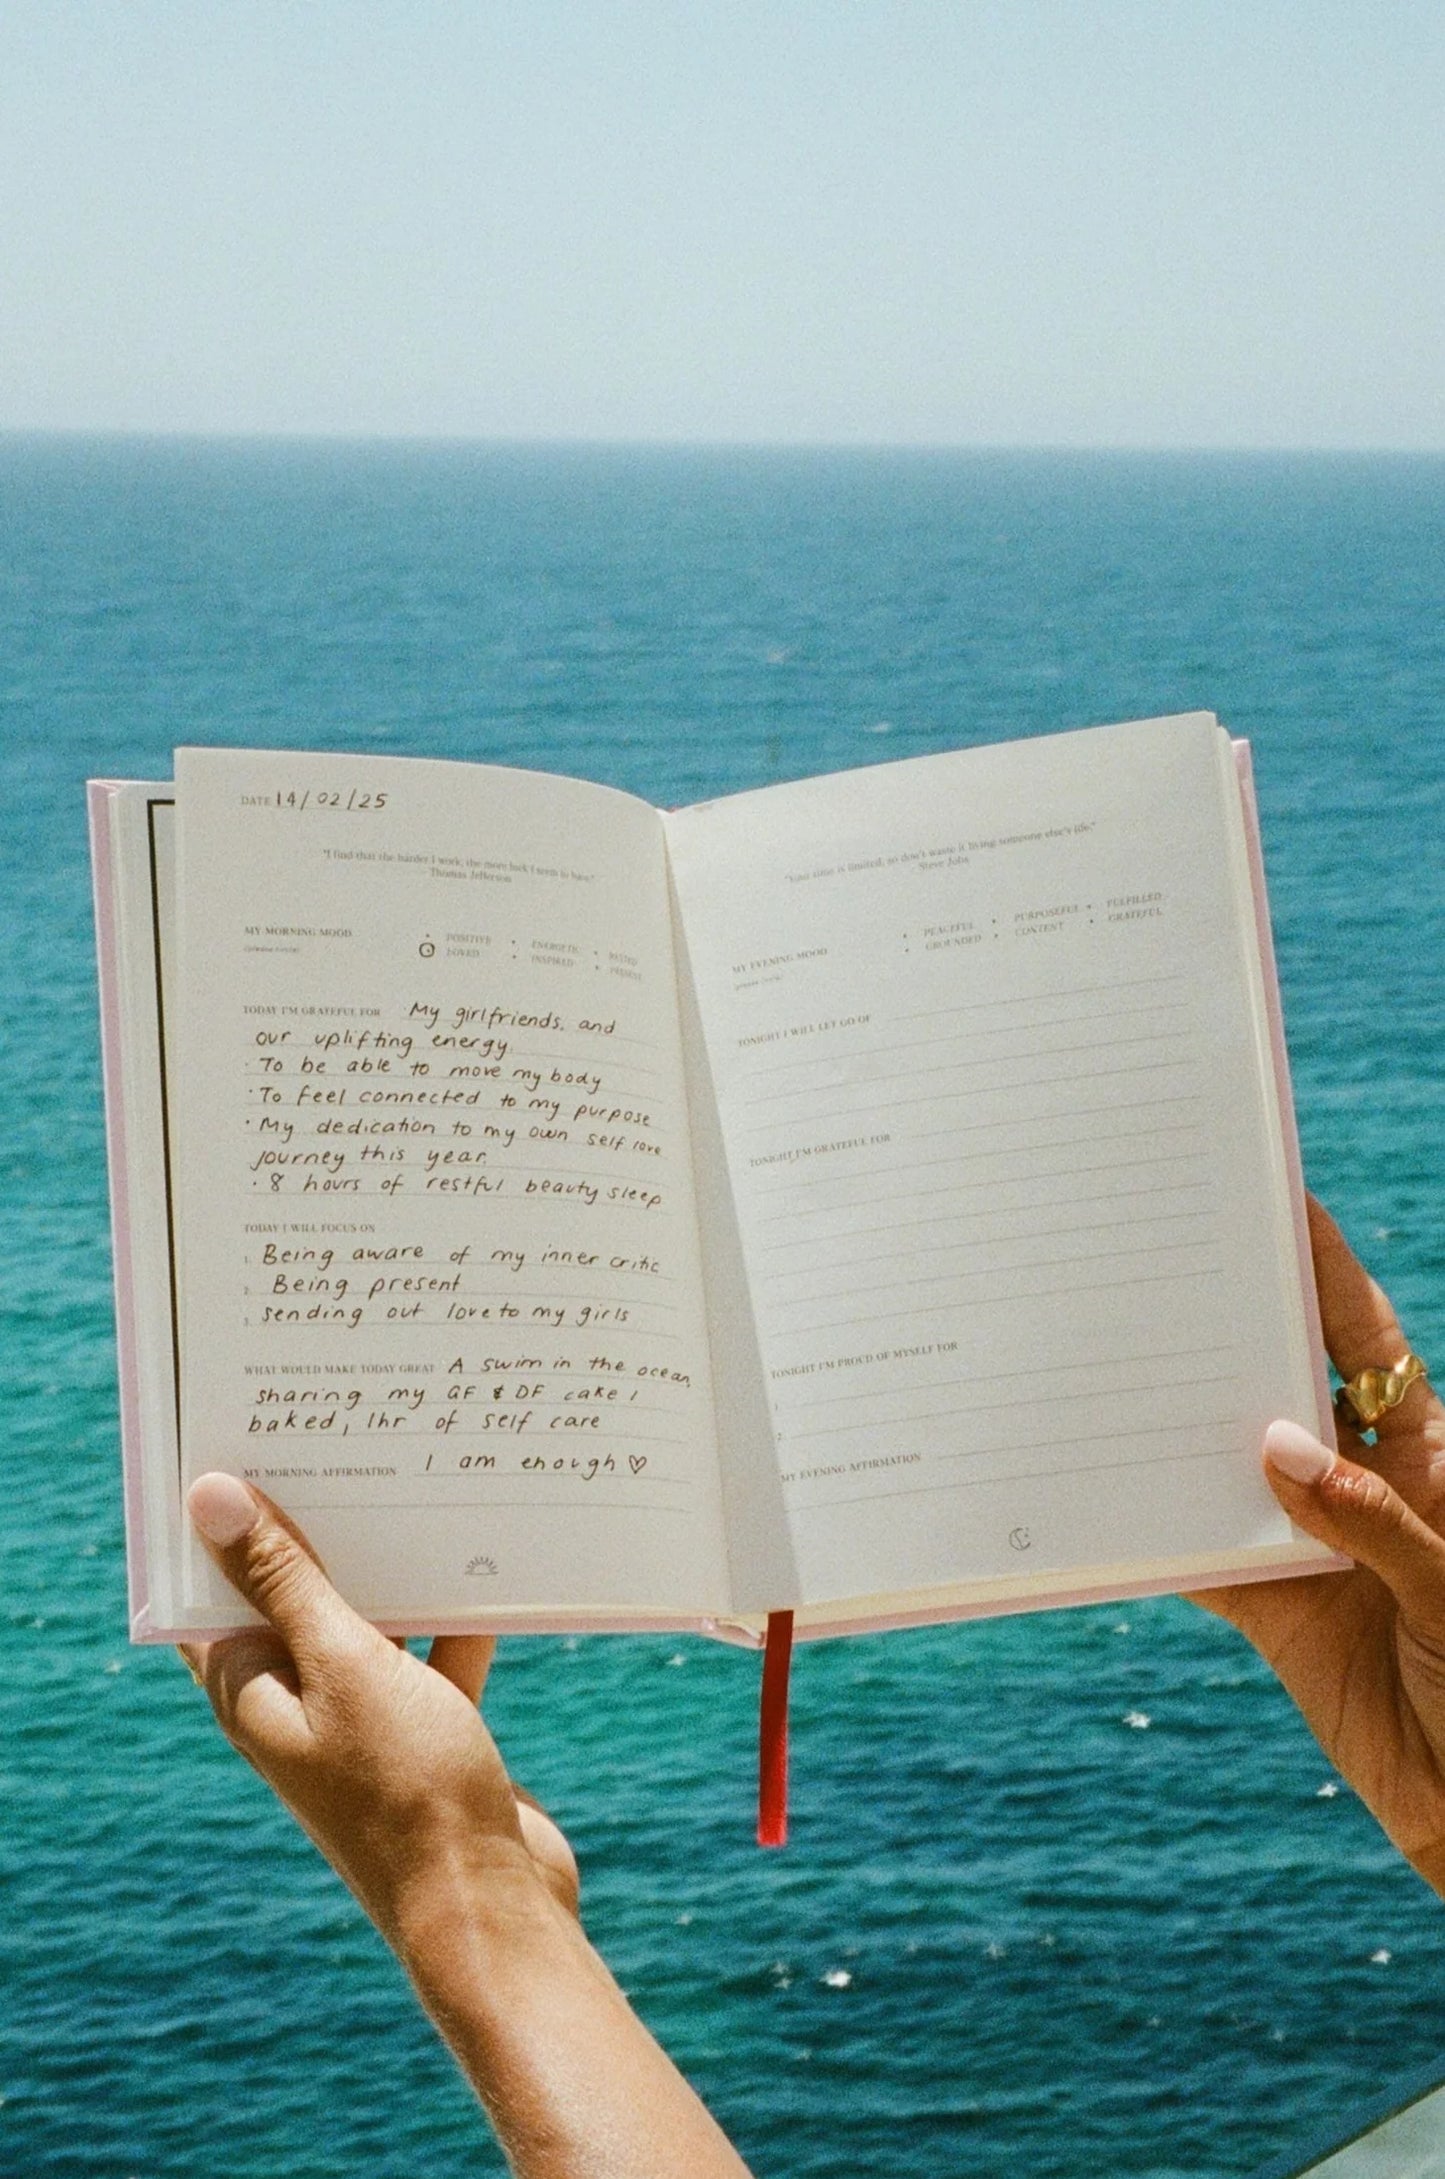 DATE 14/02/25
"I find that the harder I work, the more luck I seem to have."
- Thomas Jefferson
MY MORNING MOOD
(please circle)
• POSITIVE • ENERGETIC • RESTED
• LOVED • INSPIRED • PRESENT
TODAY I'M GRATEFUL FOR · My girlfriends, and
our uplifting energy.
· To be able to move my body
· To feel connected to my purpose
· My dedication to my own self love
journey this year.
· 8 hours of restful beauty sleep
TODAY I WILL FOCUS ON
1. Being aware of my inner critic
2. Being present
3. sending out love to my girls
WHAT WOULD MAKE TODAY GREAT A swim in the ocean,
sharing my GF & DF cake I
baked, 1hr of self care
MY MORNING AFFIRMATION I am enough ♡
"Your time is limited, so don't waste it living someone else's life."
- Steve Jobs
MY EVENING MOOD
(please circle)
• PEACEFUL • PURPOSEFUL • FULFILLED
• GROUNDED • CONTENT • GRATEFUL
TONIGHT I WILL LET GO OF
TONIGHT I'M GRATEFUL FOR
TONIGHT I'M PROUD OF MYSELF FOR
1.
2.
MY EVENING AFFIRMATION